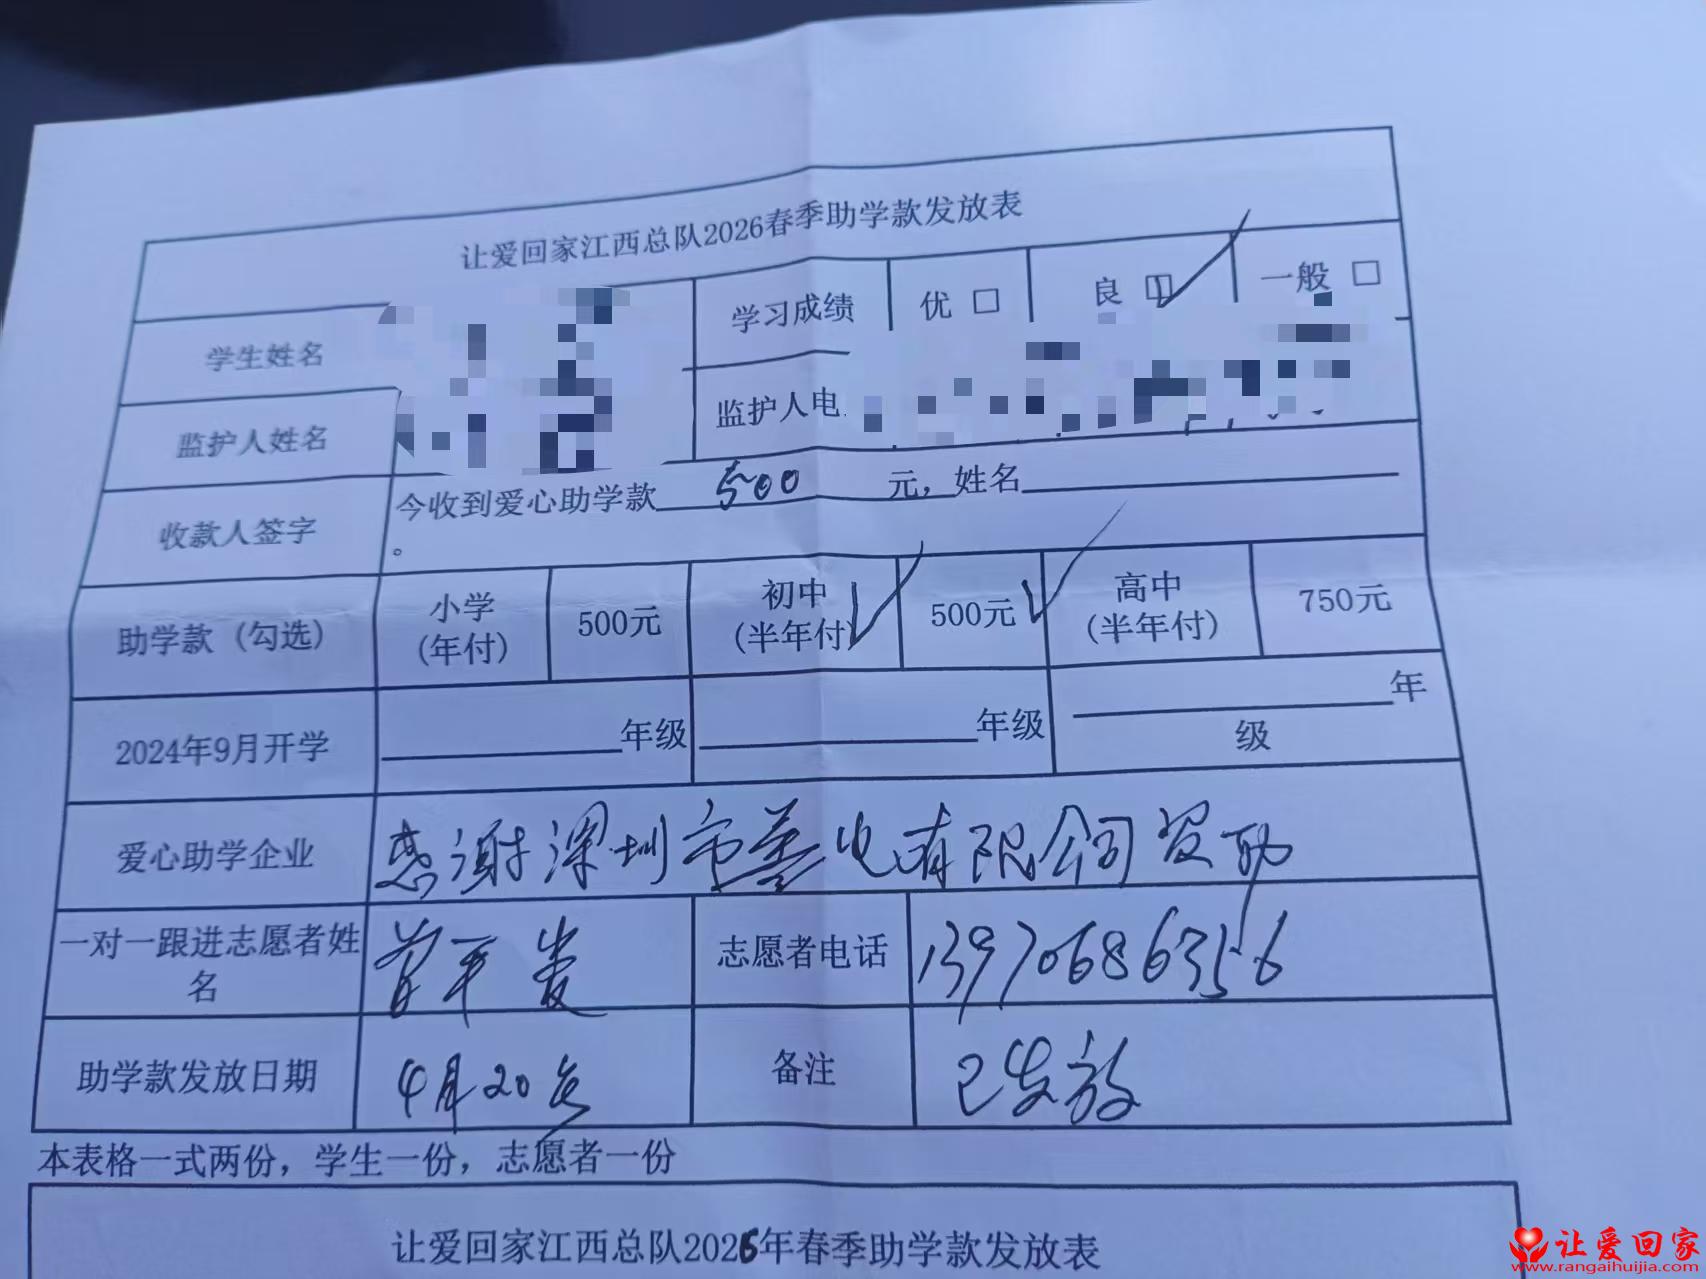 让爱回家江西总队2026春季助学款发放表
学生姓名 学习成绩 优 □ 良 □ 一般 □
监护人姓名 监护人电
收款人签字 今收到爱心助学款 500 元，姓名
。
助学款（勾选） 小学（年付） 500元 初中（半年付） 500元 高中（半年付） 750元
2024年9月开学 年级 年级 年级
爱心助学企业 感谢深圳市善电有限公司资助
一对一跟进志愿者姓名 志愿者电话 13970686356
助学款发放日期 4月20 备注 已发放
本表格一式两份，学生一份，志愿者一份
让爱回家江西总队2026年春季助学款发放表
让爱回家
www.rangaihuijia.com